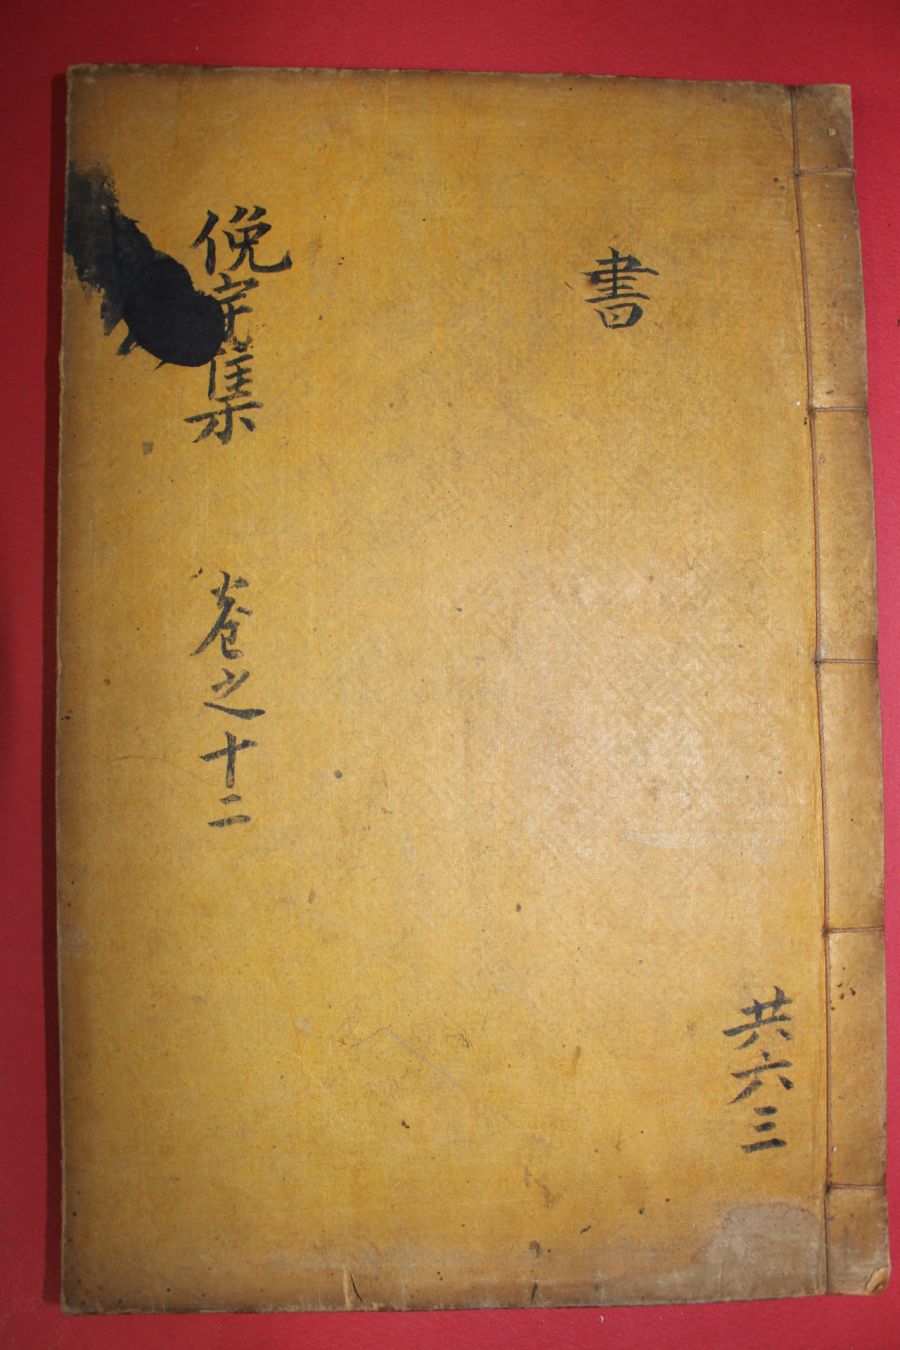 共六三
書
俛宇集 卷之十二